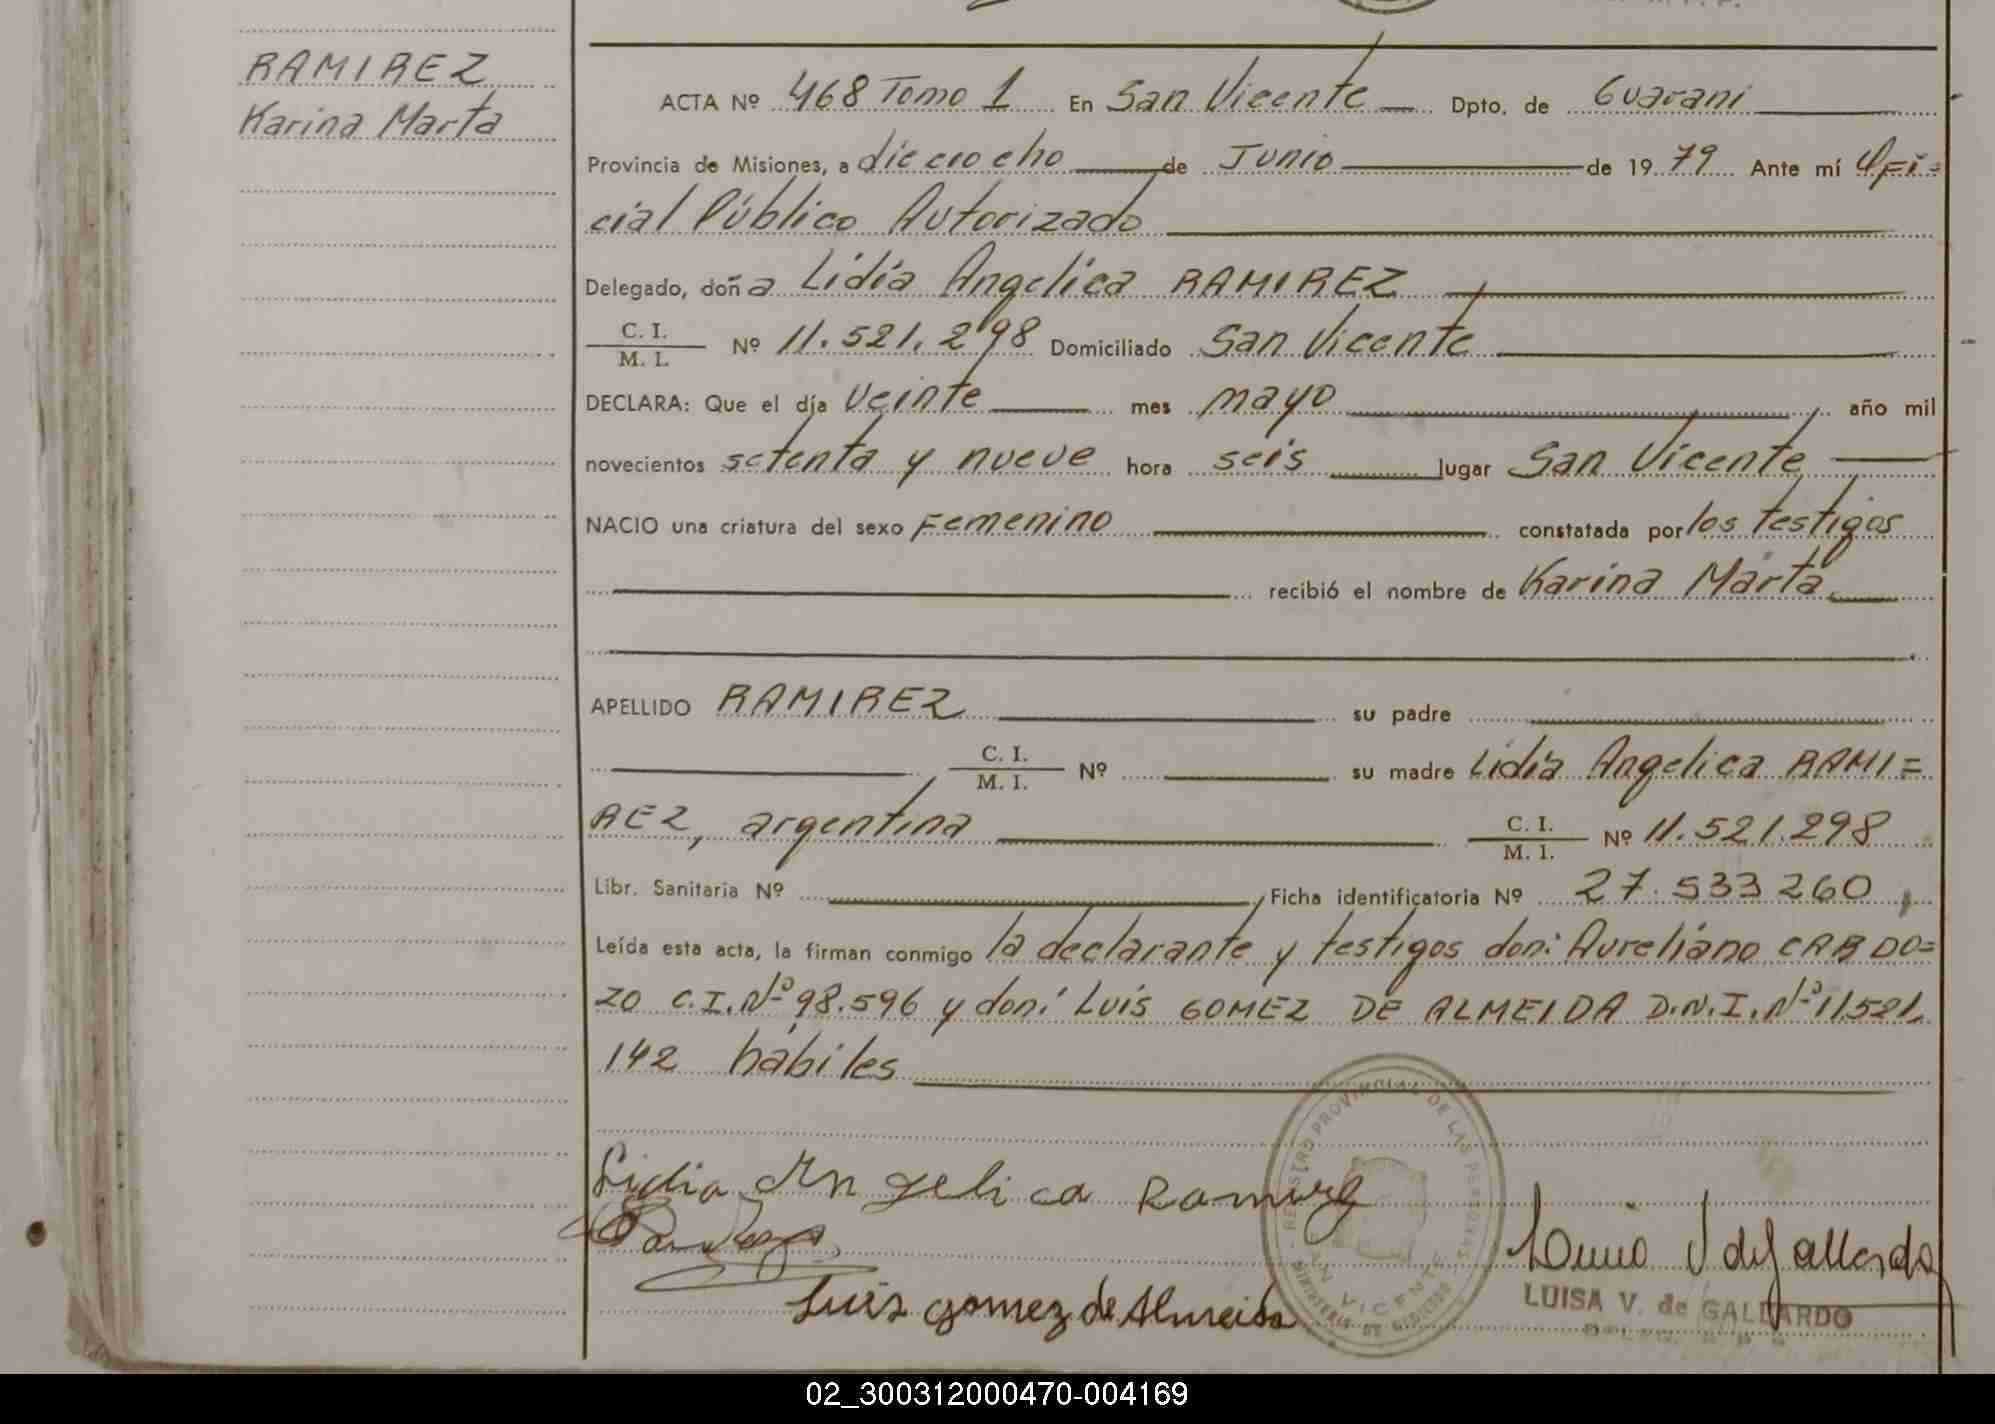 RAMIREZ
Karina Marta
ACTA Nº 468 Tomo 1 En San Vicente Dpto. de Guaraní
Provincia de Misiones, a dieciocho de Junio de 19 79 Ante mí Ofi=
cial Público Autorizado
Delegado, doña Lidia Angelica RAMIREZ
C. I.
M. I. Nº 11.521.298 Domiciliado San Vicente
DECLARA: Que el día veinte mes mayo año mil
novecientos setenta y nueve hora seis lugar San Vicente
NACIO una criatura del sexo Femenino constatada por los testigos
recibió el nombre de Karina Marta
APELLIDO RAMIREZ su padre
C. I.
M. I. Nº su madre Lidia Angelica RAMI=
REZ, argentina C. I.
M. I. Nº 11.521.298
Libr. Sanitaria Nº Ficha identificatoria Nº 27.533260
Leída esta acta, la firman conmigo la declarante y testigos don: Aureliano CARDO=
ZO C.I.Nº 98.596 y don: Luis GOMEZ DE ALMEIDA D.N.I.Nº 11521.
142 hábiles
REGISTRO PROVINCIAL DE LAS PERSONAS
SAN VICENTE
MINISTERIO DE GOBIERNO
Lidia Angelica Ramirez
Luis gomez de Almeida
Luisa V de Gallardo
LUISA V. de GALLARDO
02_300312000470-004169